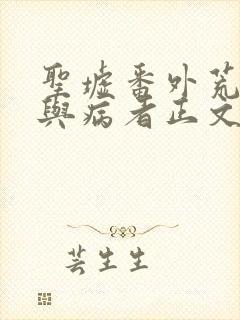 聖墟番外荒
與病者正文
芸生生